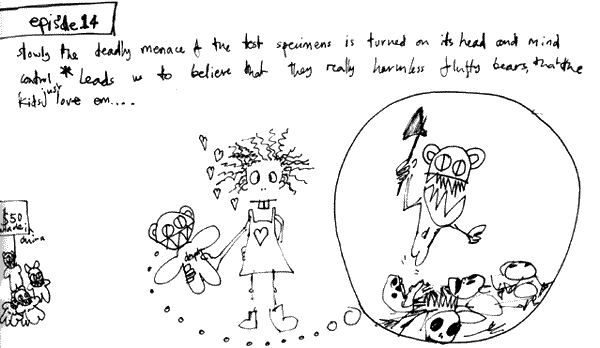 episode 14
slowly the deadly menace of the test specimens is turned on its head and mind
control * Leads us to believe that they really harmless fluffy bears, that the
kids just love em....
$50
made in
china